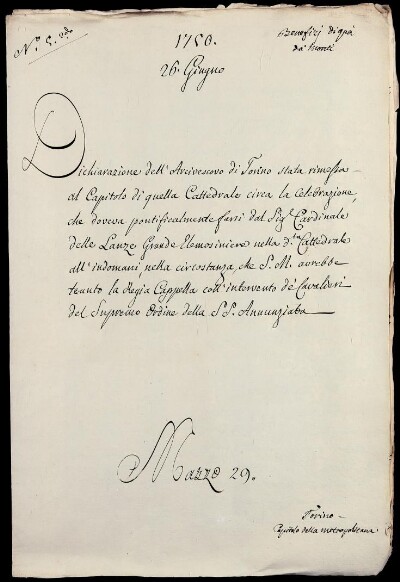 N.º 5.
1750.
26. Giugno
Benefizj di quà
da' monti
Dichiarazione dell'Arcivescovo di Torino stata rimessa
al Capitolo di quella Cattedrale circa la celebrazione,
che doveva pontificalmente farsi dal Sig.r Cardinale
delle Lanze Grande Elemosiniere nella d.ta Cattedrale
all'indomani nella circostanza, che S. M. avrebbe
tenuto la Regia Cappella coll'intervento de' Cavalieri
del Supremo Ordine della S.S. Annunziata
Mazzo 29.
Torino
Capitolo della metropolitana